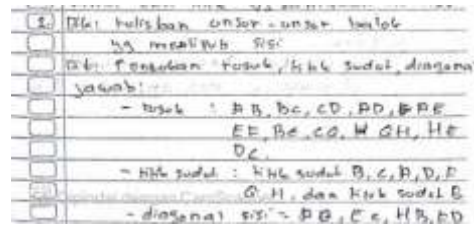 1. Dik: tuliskan unsur-unsur balok
yg meliputi sisi
Dit: Tentukan rusuk, titik sudut, diagonal
jawab:
- rusuk : AB, BC, CD, AD, AE
EF, BF, CG, GH, HE
DC.
- titik sudut : titik sudut B, C, A, D, E
G, H, dan titik sudut B
- diagonal sisi =